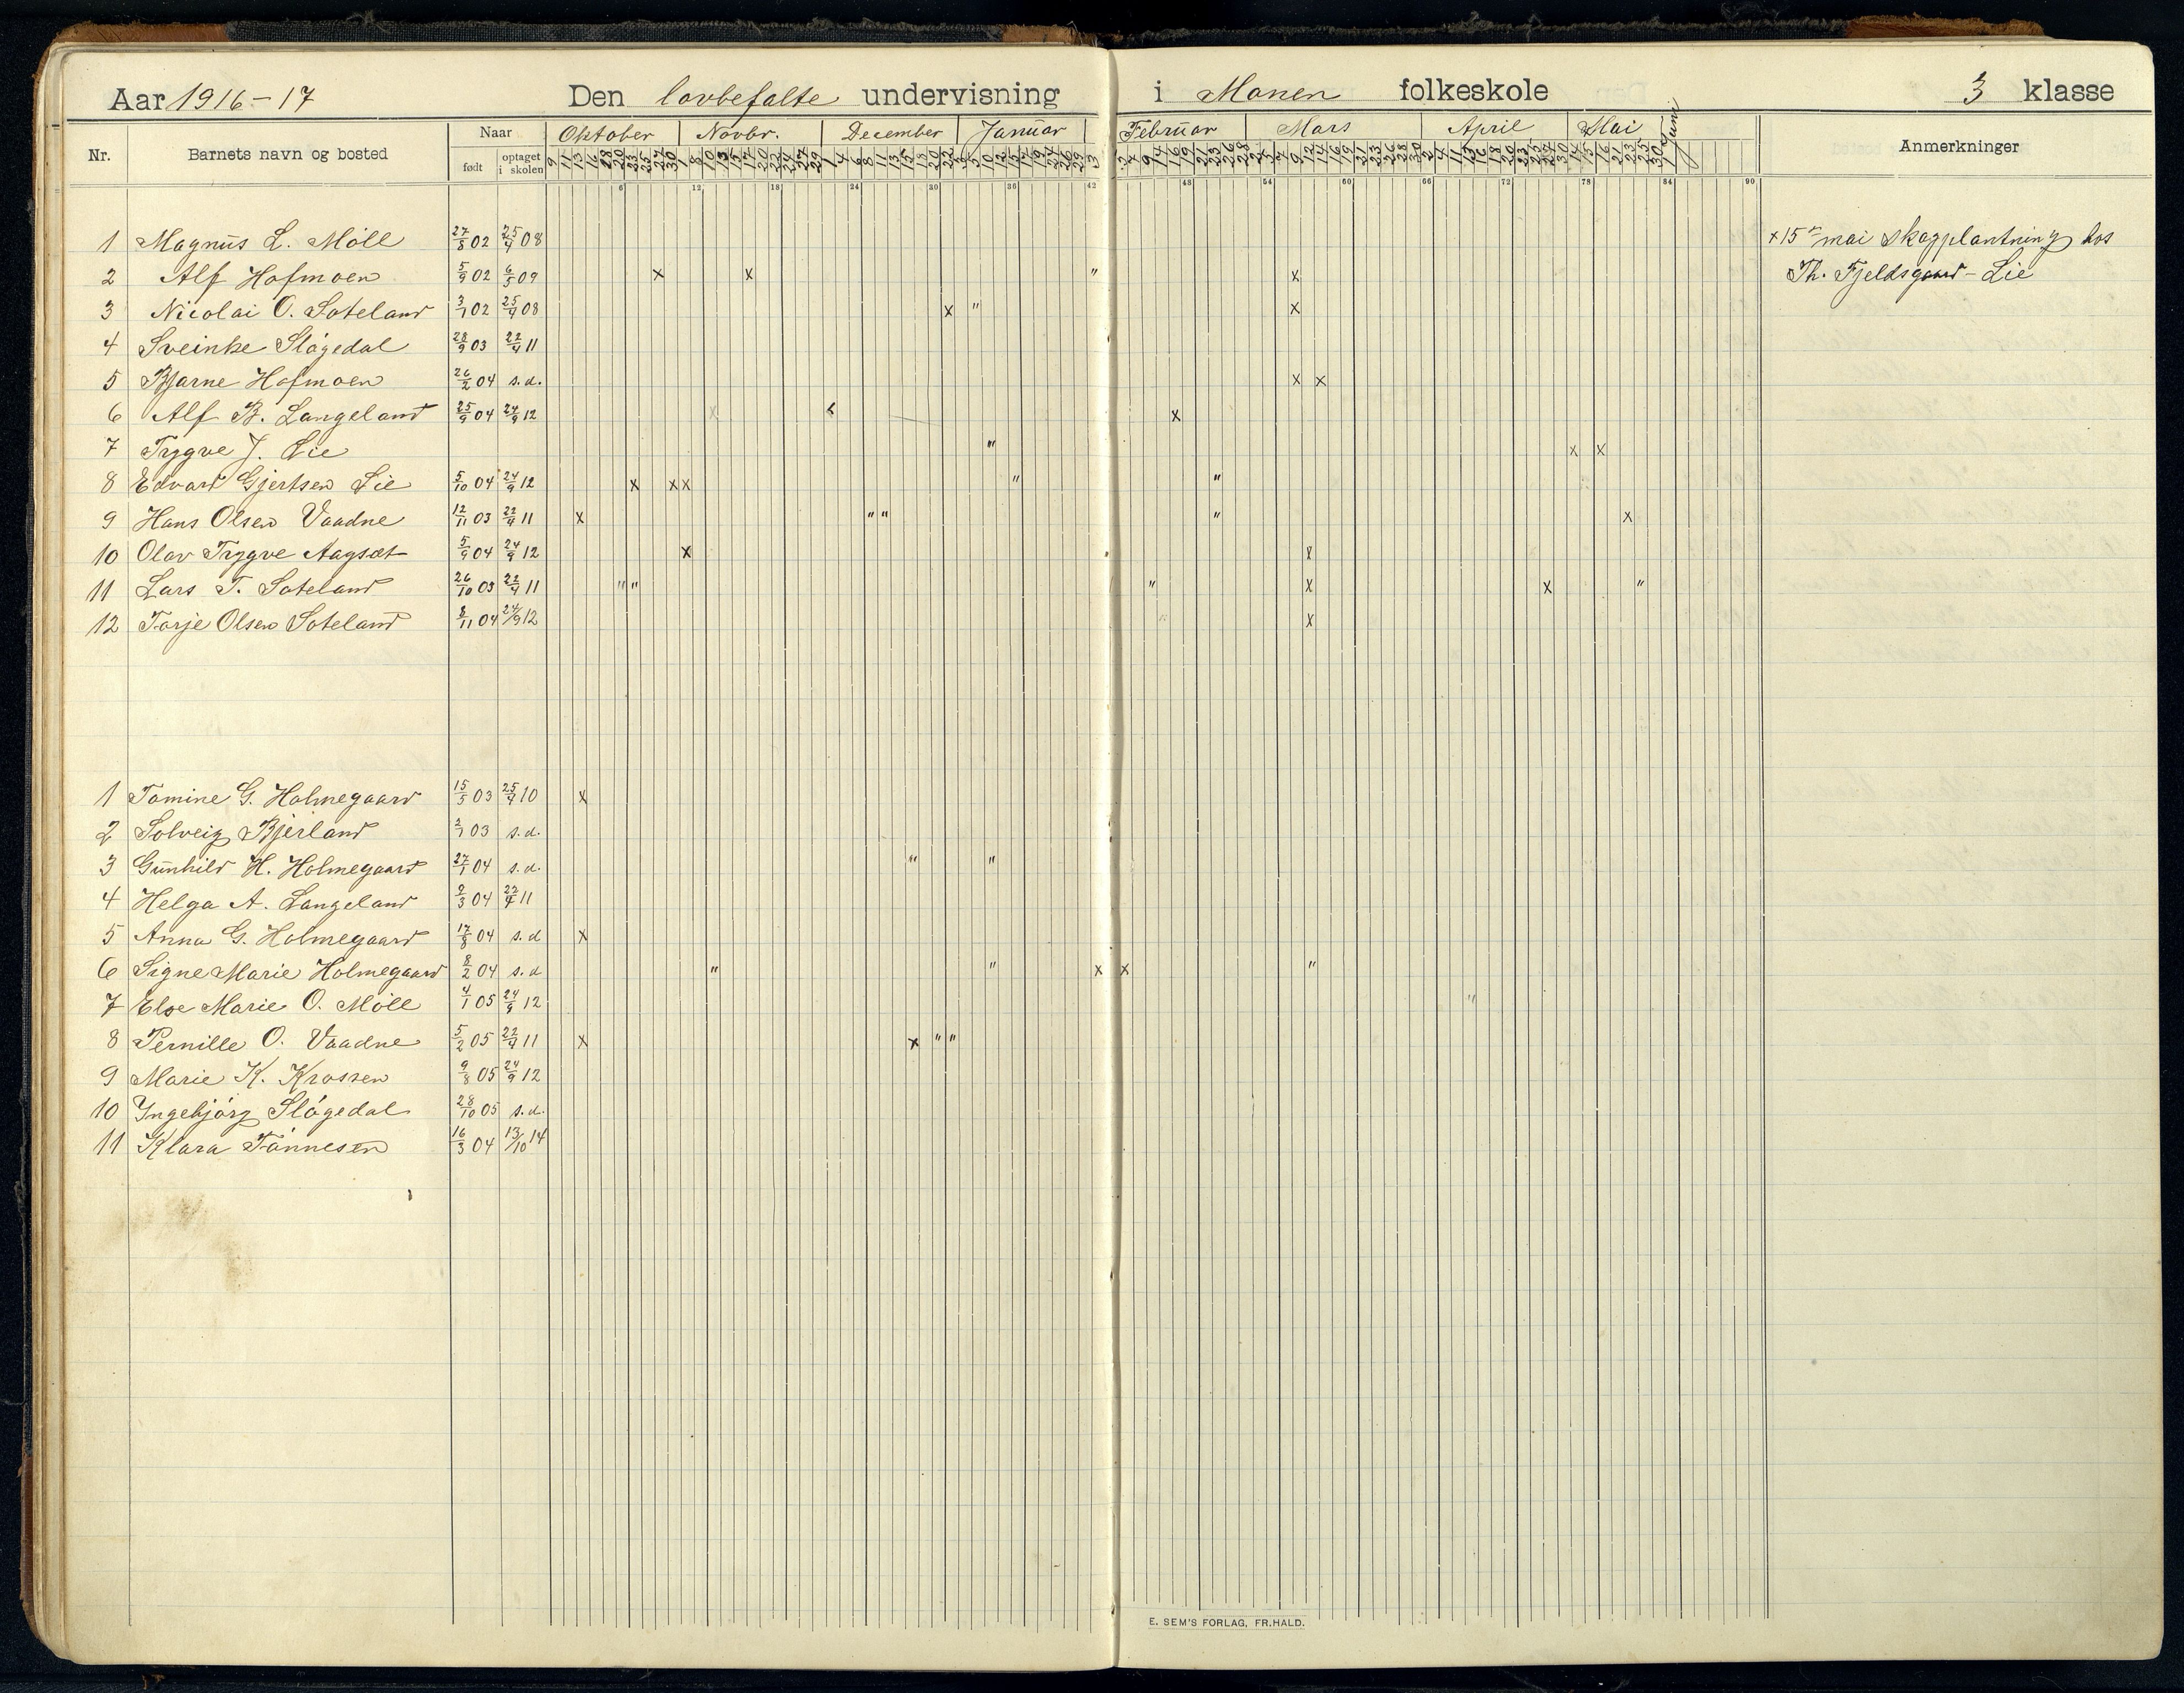 Aar 1916-17 Den lovbefalte undervisning i Monen folkeskole 3 klasse
Nr. Barnets navn og bosted Naar født optaget i skolen Oktober Novbr. December Januar Februar Mars April Mai Juni Anmerkninger
6 12 18 24 30 36 42 48 54 60 66 72 78 84 90
1 Magnus L. Möll 27/8 02 25/4 08 x 15de mai skogplantning hos
2 Alf Hofmoen 5/9 02 6/5 09 x x " x Th. Fjeldsgaard - Lie
3 Nicolai O. Soteland 3/1 02 25/4 08 x " x
4 Sveinke Slógedal 28/9 03 22/4 11
5 Bjarne Hofmoen 26/2 04 s.d. x x
6 Alf B. Langeland 25/9 04 24/9 12 x
7 Trygve J. Lie " x x
8 Edvard Gjertsen Lie 5/10 04 24/9 12 x x x " "
9 Hans Olsen Vaadne 12/11 03 22/4 11 x " " " x
10 Olav Trygve Aagsæt 5/9 04 24/9 12 x x
11 Lars T. Soteland 26/10 03 22/4 11 " " " x x "
12 Torje Olsen Soteland 8/11 04 24/9 12 x
1 Tomine G. Holmegaard 15/5 03 25/4 10 x
2 Solveig Bjerland 2/1 03 s.d.
3 Gunhild H. Holmegaard 27/1 04 s.d. " "
4 Helga A. Langeland 2/3 04 22/4 11
5 Anna G. Holmegaard 17/8 04 s.d x
6 Signe Marie Holmegaard 8/2 04 s.d " " x x "
7 Else Marie O. Möll 4/1 05 24/9 12 "
8 Pernille O. Vaadne 5/2 05 22/4 11 x x " "
9 Marie K. Krossen 9/8 05 24/9 12
10 Ingebjórg Slógedal 28/10 05 s.d.
11 Klara Tónnesen 16/3 04 13/10 14
E. SEM'S FORLAG, FR.HALD.